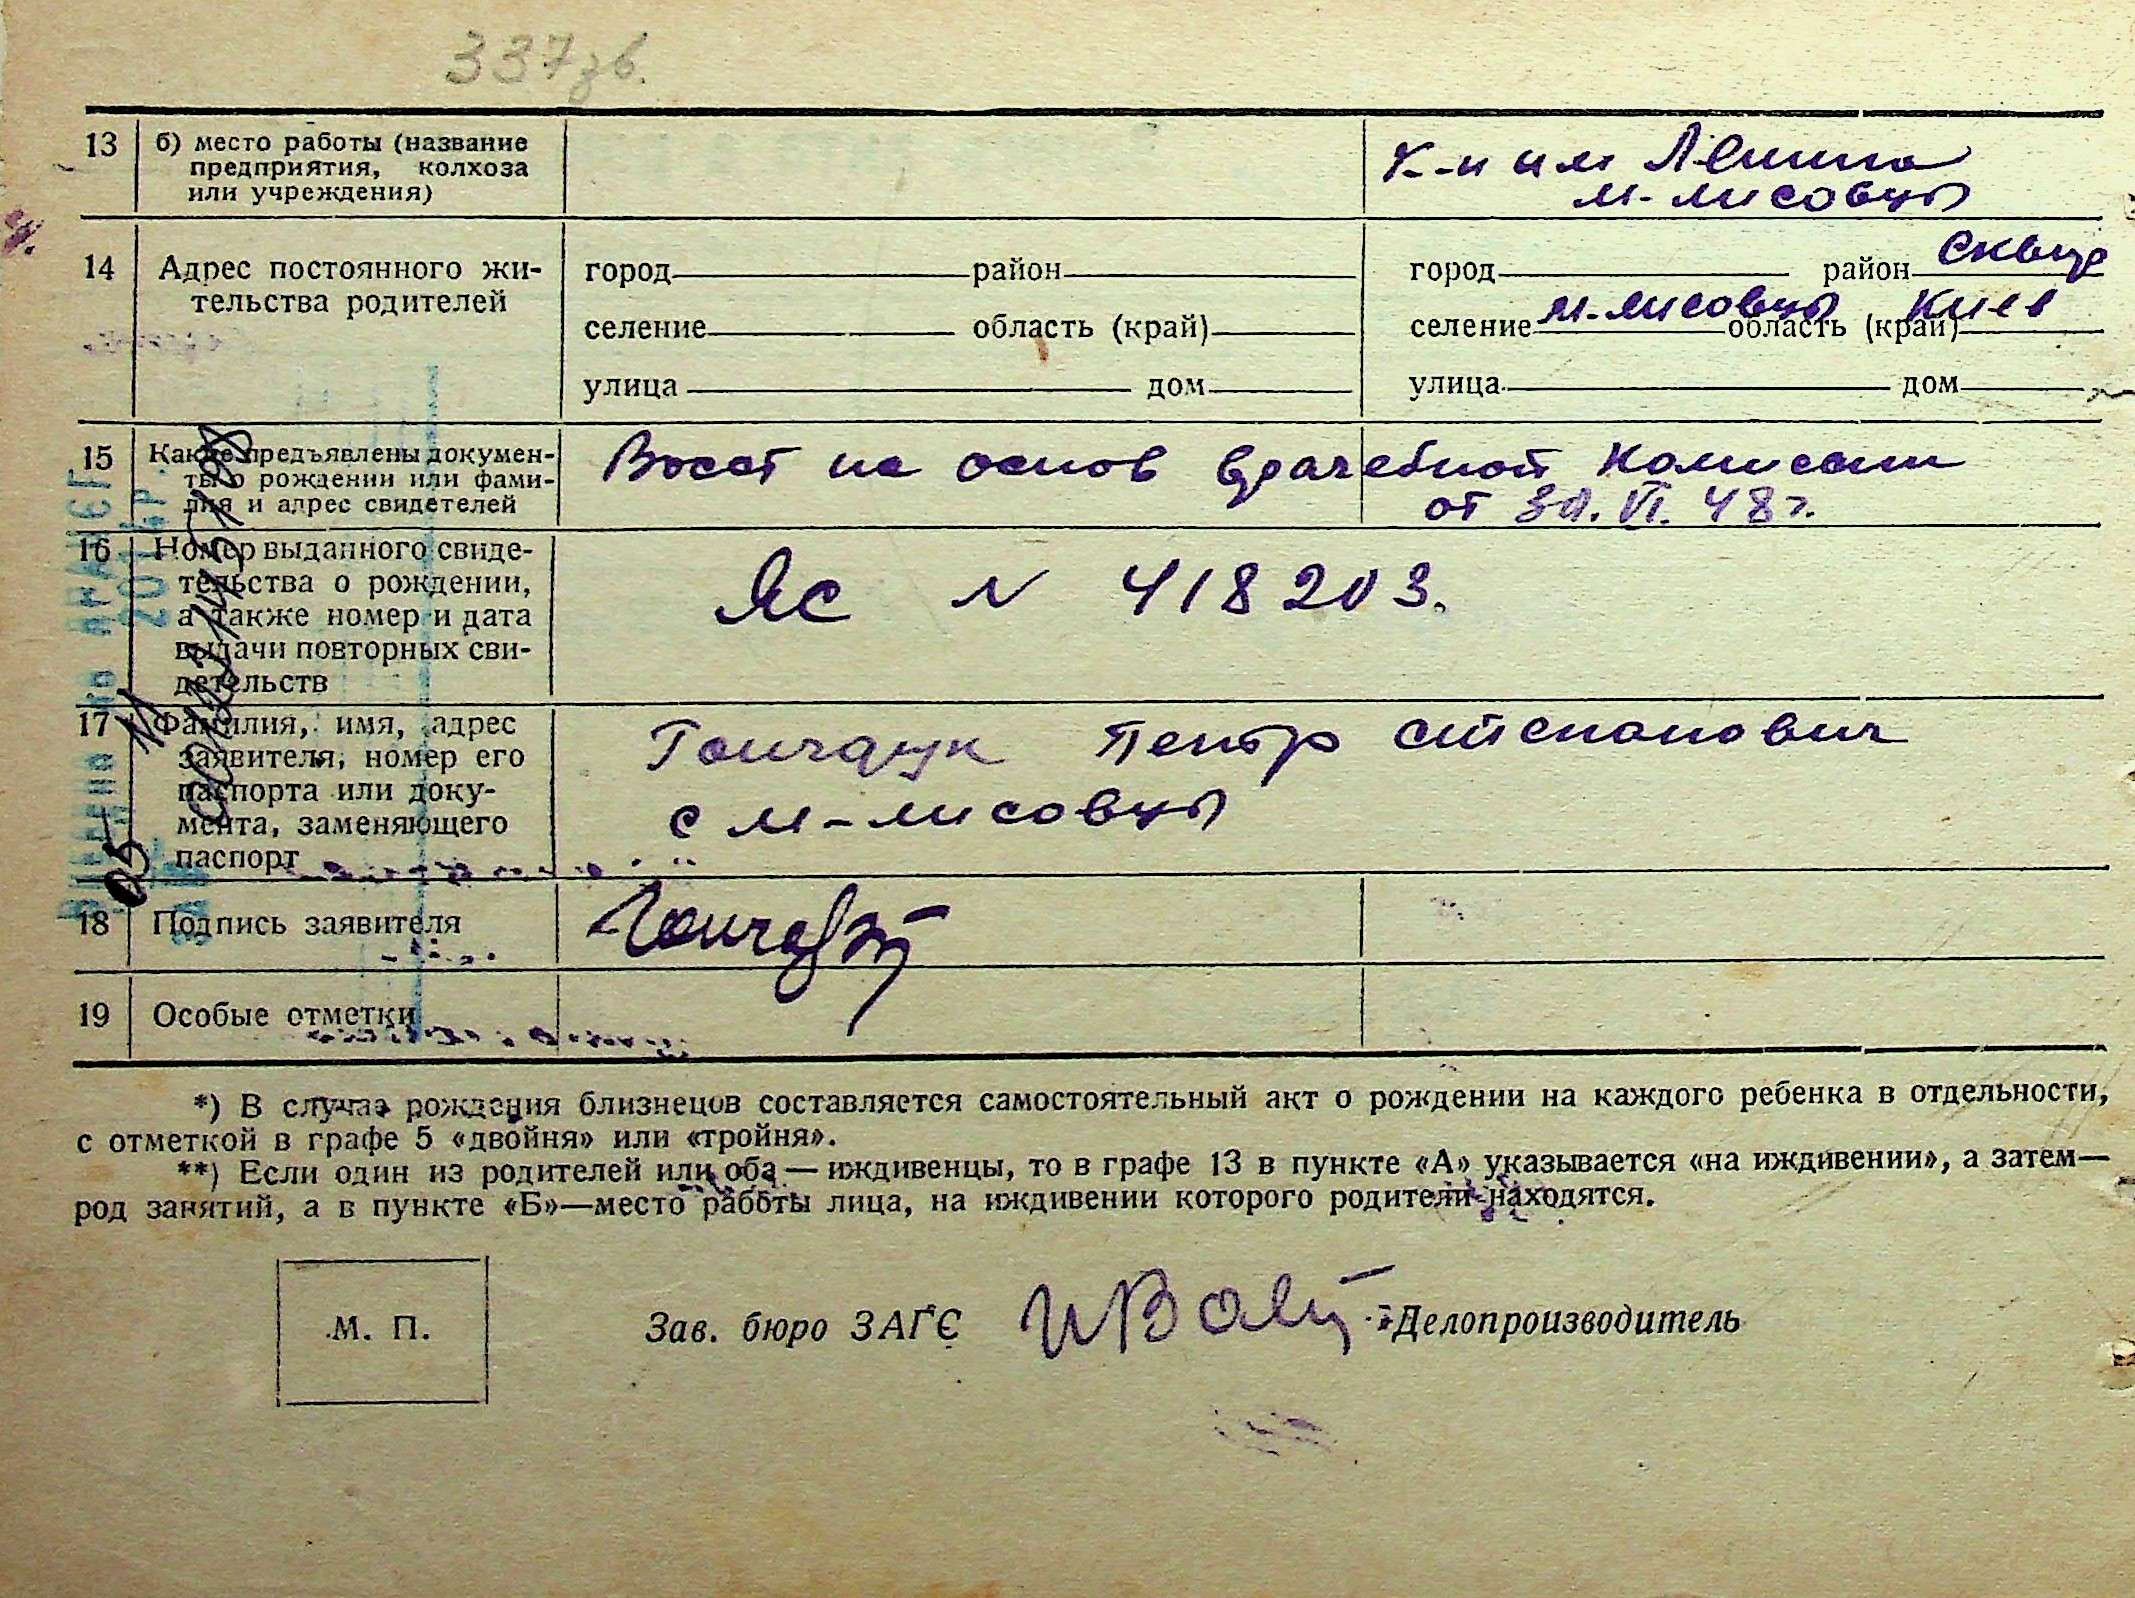 337зв.
13 б) место работы (название
предприятия, колхоза
или учреждения)
К-п им Ленина
м-лисовцы
14 Адрес постоянного жи-
тельства родителей
город район
селение область (край)
улица дом
город район Сквир
селение м-лисовцы область (край) Киев
улица дом
15 Какие предъявлены докумен-
ты о рождении или фами-
лия и адрес свидетелей
Восст на основ врачебной комиссии
от 30.VI.48г.
16 Номер выданного свиде-
тельства о рождении,
а также номер и дата
выдачи повторных сви-
детельств
ЯС N 418203.
17 Фамилия, имя, адрес
заявителя, номер его
паспорта или доку-
мента, заменяющего
паспорт
Гончарук Петр Степанович
с м-лисовцы
18 Подпись заявителя
19 Особые отметки
*) В случае рождения близнецов составляется самостоятельный акт о рождении на каждого ребенка в отдельности,
с отметкой в графе 5 «двойня» или «тройня».
**) Если один из родителей или оба — иждивенцы, то в графе 13 в пункте «А» указывается «на иждивении», а затем—
род занятий, а в пункте «Б»—место работы лица, на иждивении которого родители находятся.
М. П.
Зав. бюро ЗАГС Делопроизводитель